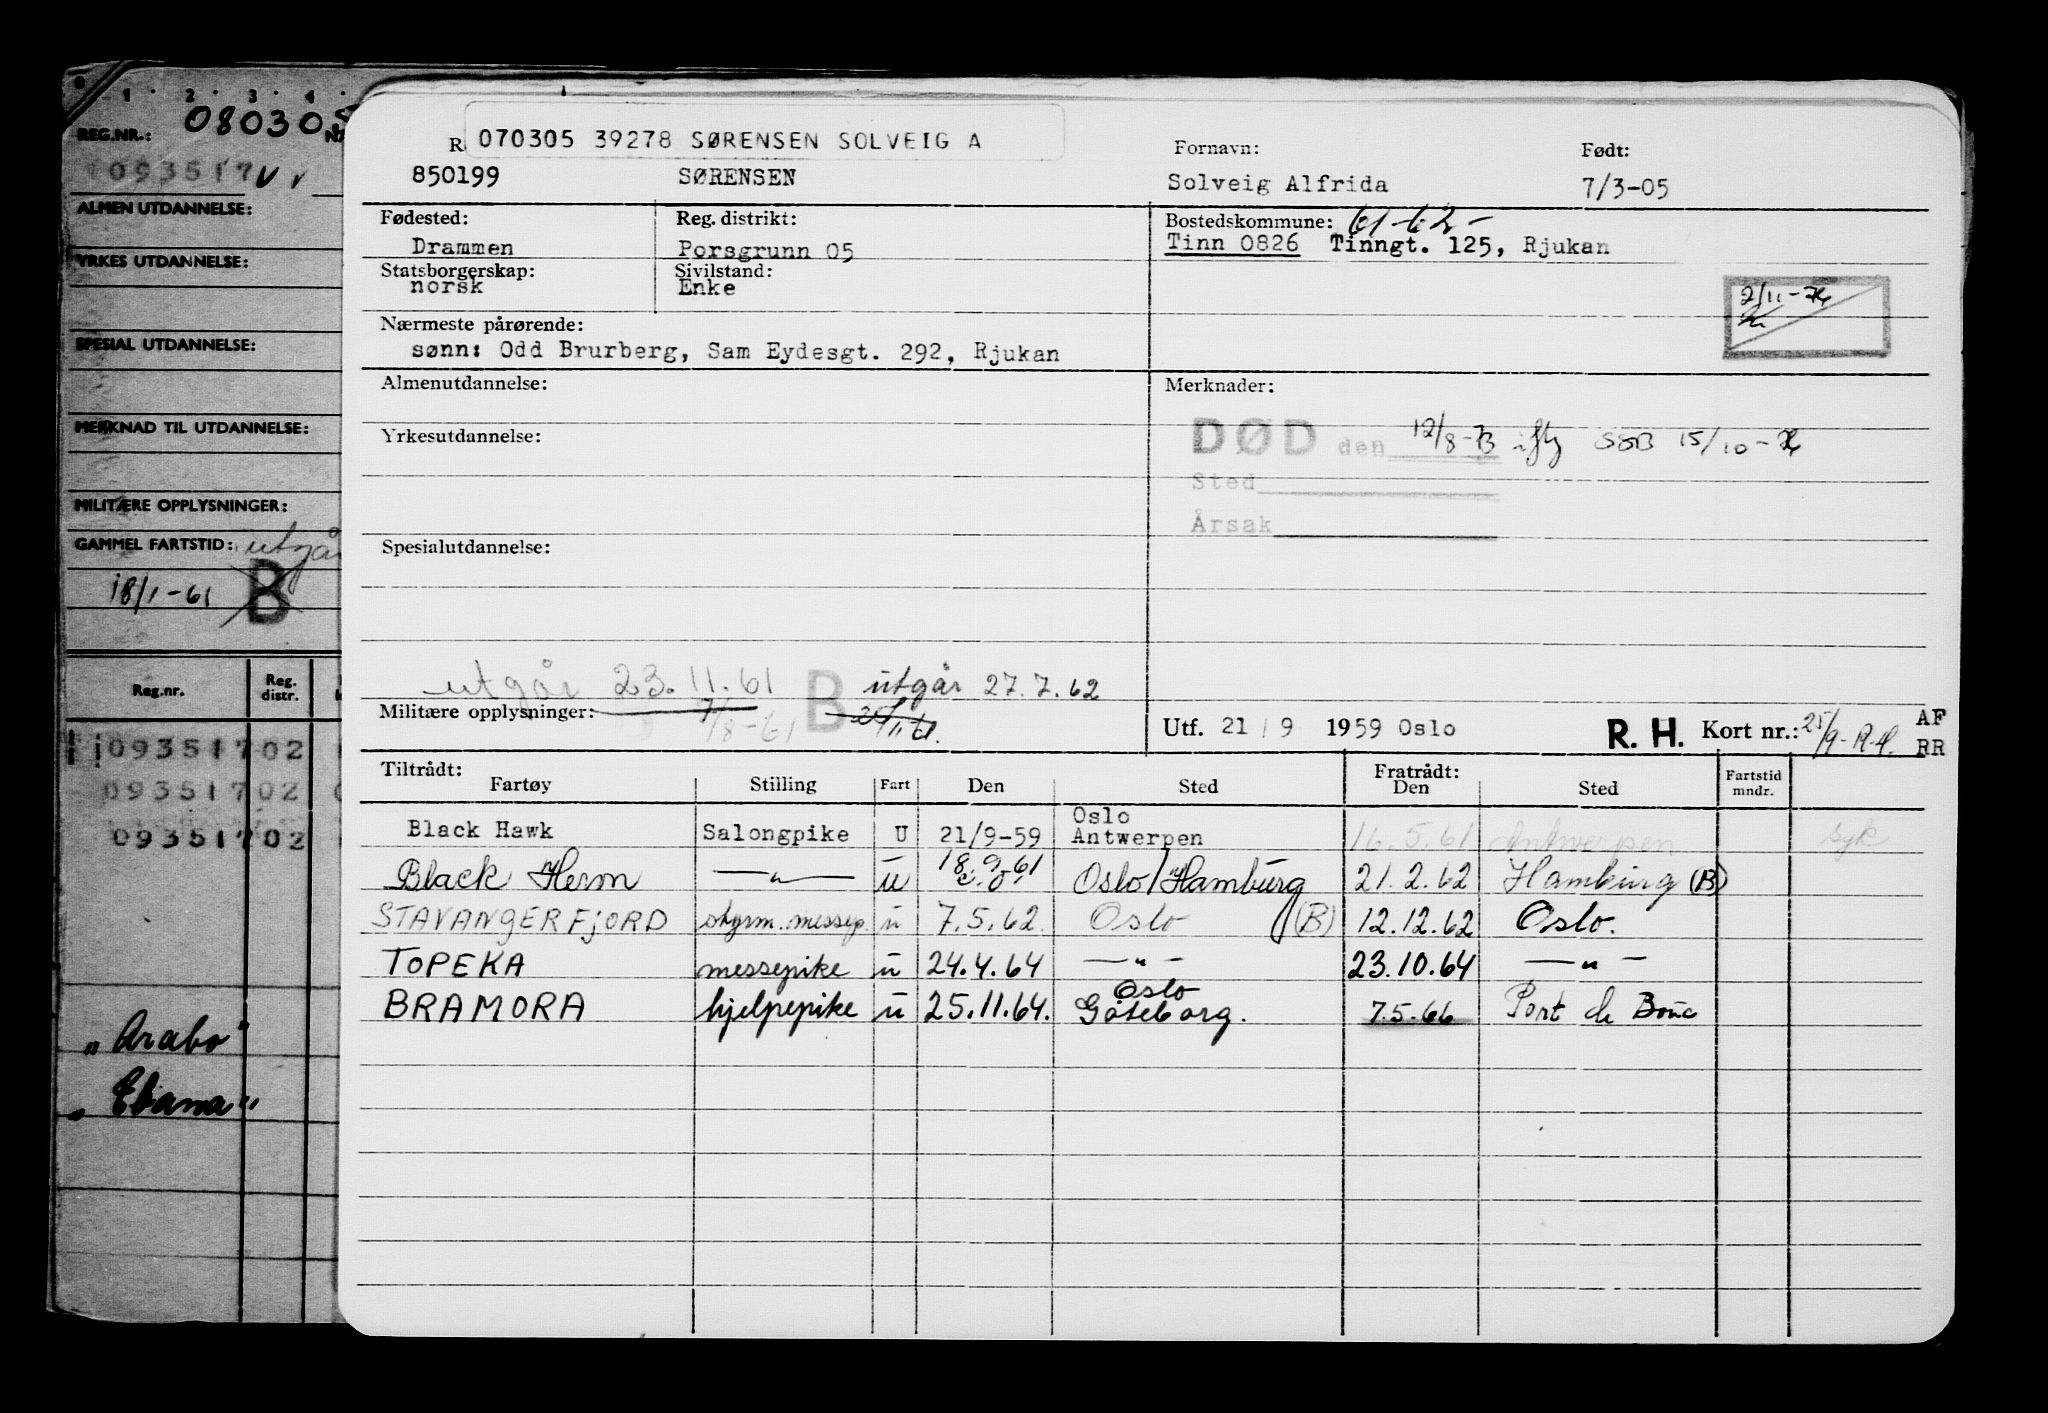 1 2 3 4
REG.NR.: 080305
093517
ALMEN UTDANNELSE:
YRKES UTDANNELSE:
SPESIAL UTDANNELSE:
MERKNAD TIL UTDANNELSE:
MILITÆRE OPPLYSNINGER:
GAMMEL FARTSTID: utgår
18/1-61 B
Reg.nr. Reg. distr.
09351702
09351702
09351702
„Arabo"
„Ebama"
070305 39278 SØRENSEN SOLVEIG A
R Fornavn: Født:
850199 SØRENSEN Solveig Alfrida 7/3-05
Fødested: Reg. distrikt: Bostedskommune: 61-62-
Drammen Porsgrunn 05 Tinn 0826 Tinngt. 125, Rjukan
Statsborgerskap: Sivilstand:
norsk Enke
2/11-74
Nærmeste pårørende:
sønn: Odd Brurberg, Sam Eydesgt. 292, Rjukan
Almenutdannelse: Merknader:
DØD den 12/8-73 iflg SSB 15/10-74
Yrkesutdannelse:
Sted
Årsak
Spesialutdannelse:
utgår 23.11.61 B utgår 27.7.62
Militære opplysninger: 7/8-61
Utf. 21/9 1959 Oslo R. H. Kort nr.: 25/9-R.H. AF
RR
Tiltrådt: Fratrådt: Fartstid
Fartøy Stilling Fart Den Sted Den Sted mndr.
Black Hawk Salongpike U 21/9-59 Oslo Antwerpen 16.5.61 Antwerpen syk
Black Heron —„— u 18.9.61 Oslo/Hamburg 21.2.62 Hamburg (B)
STAVANGERFJORD skyrm.messep. u 7.5.62 Oslo (B) 12.12.62 Oslo.
TOPEKA messepike u 24.4.64 —„— 23.10.64 —„—
BRAMORA hjelpepike u 25.11.64. Oslo Göteborg. 7.5.66 Port de Bouc